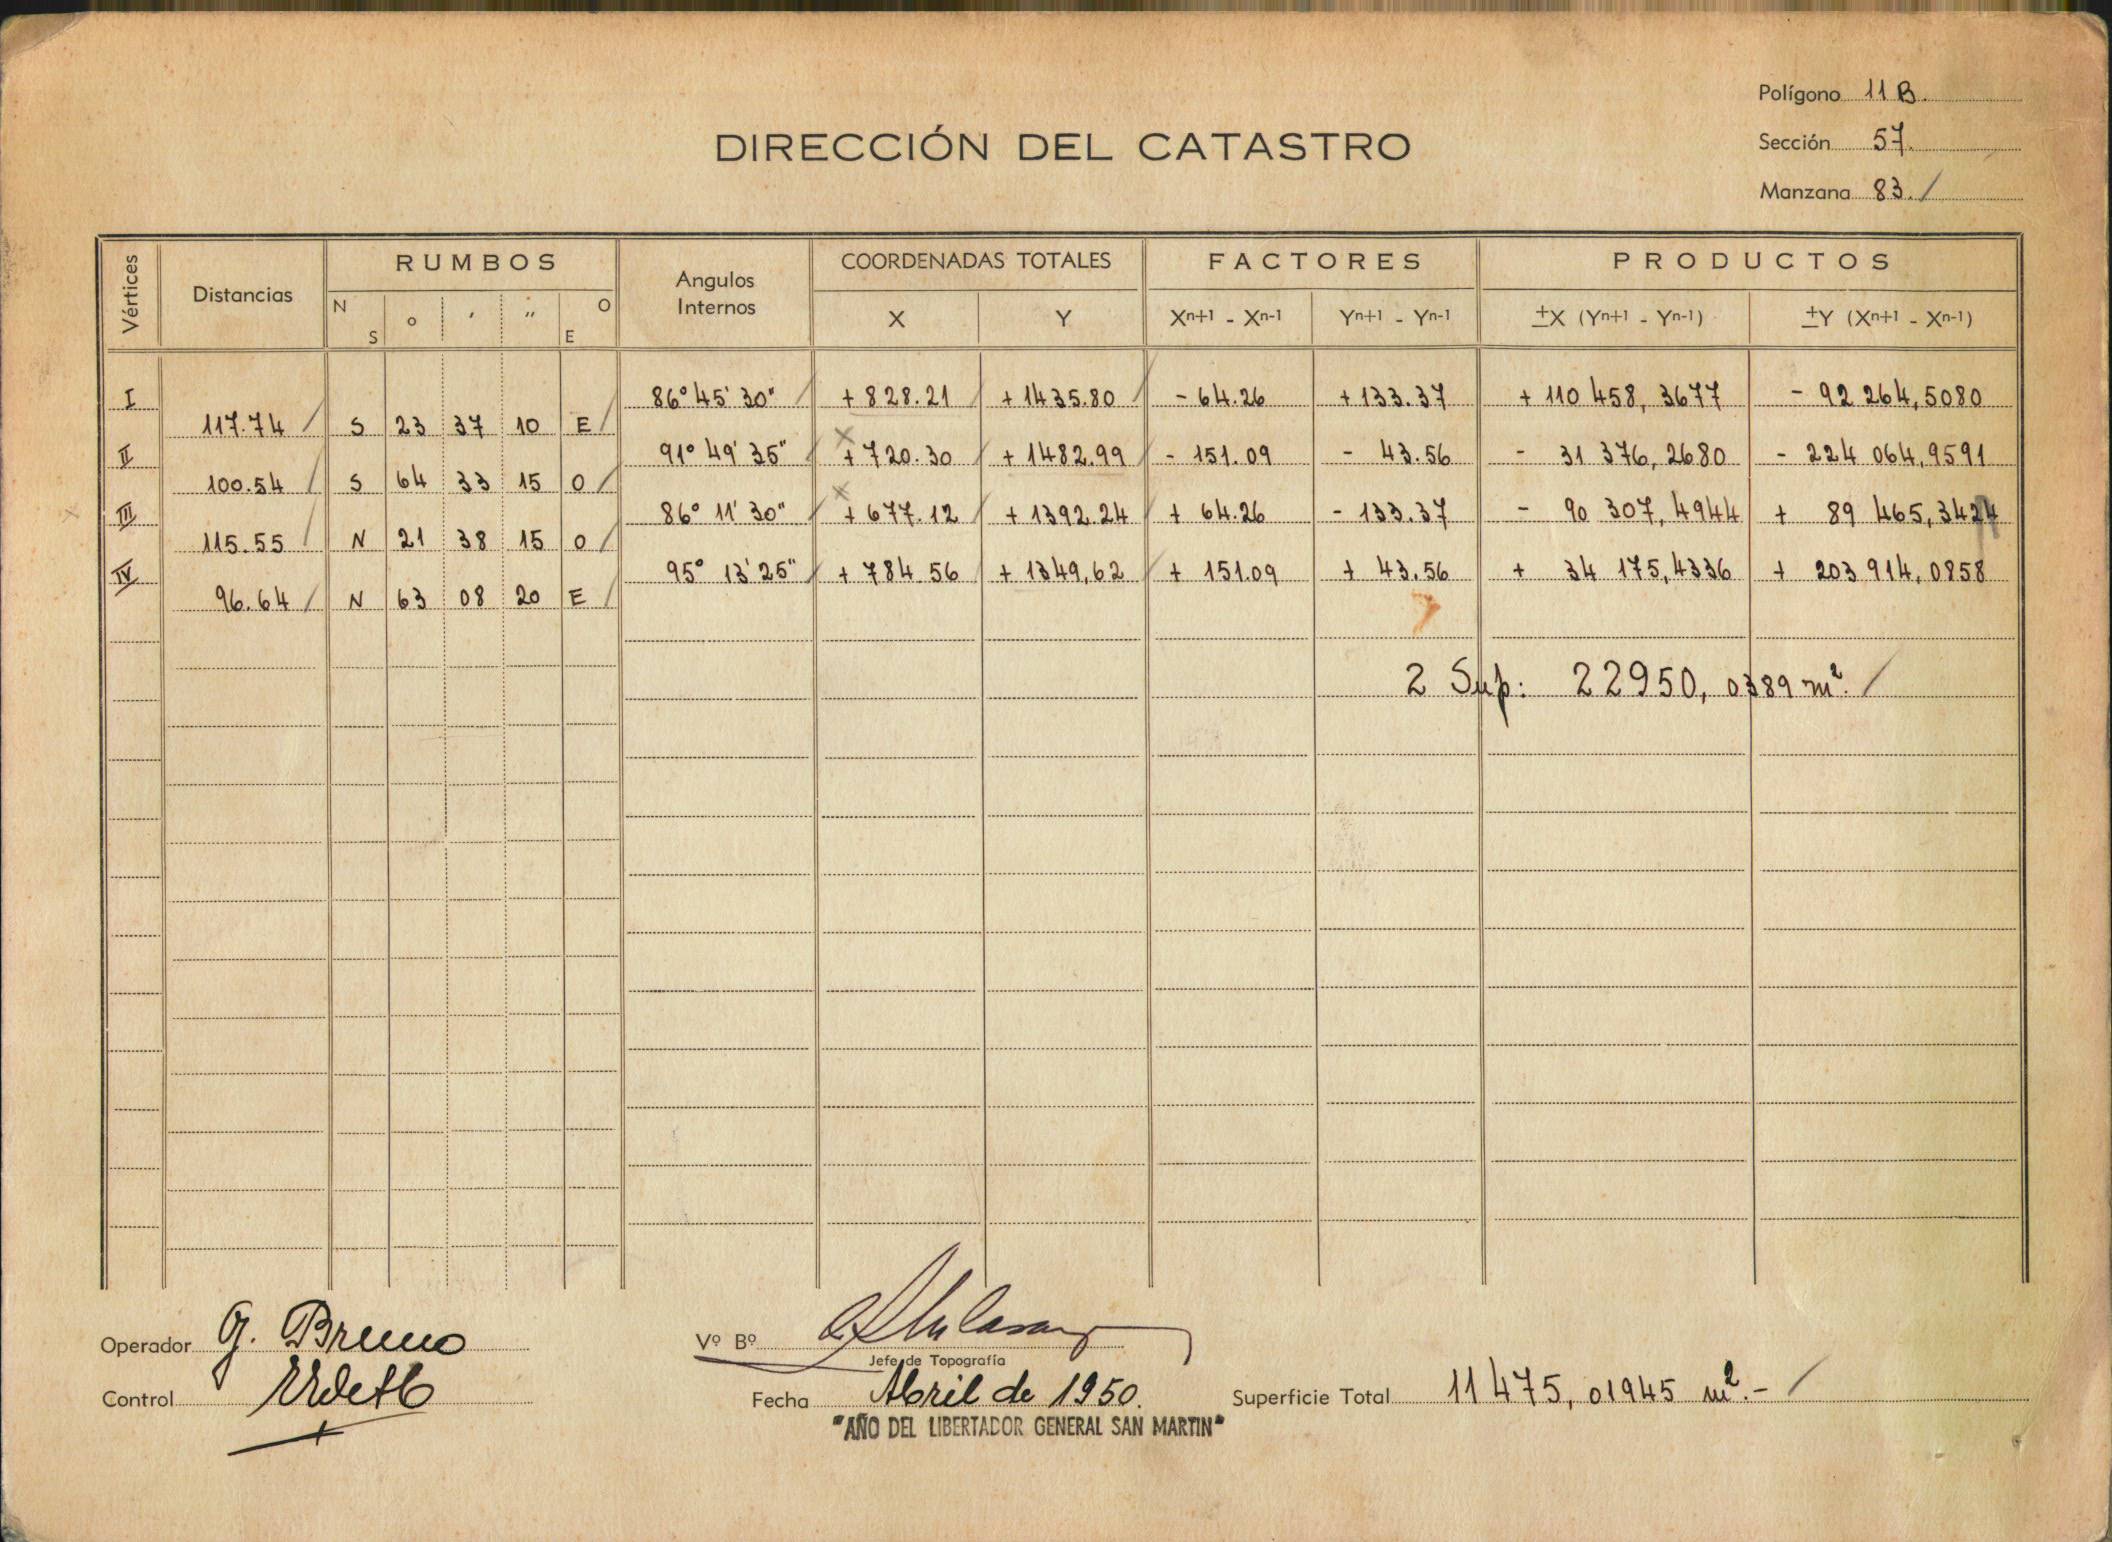 Polígono 11 B.
DIRECCIÓN DEL CATASTRO
Sección 57.
Manzana 83.
Vértices Distancias RUMBOS Angulos Internos COORDENADAS TOTALES FACTORES PRODUCTOS
N S ° ' " O E X Y Xn+1 - Xn-1 Yn+1 - Yn-1 ±X (Yn+1 - Yn-1) ±Y (Xn+1 - Xn-1)
I 86° 45' 30" + 828.21 + 1435.80 - 64.26 + 133.37 + 110 458, 3677 - 92 264,5080
117.74 S 23 37 10 E
II 91° 49' 35" + 720.30 + 1482.99 - 151.09 - 43.56 - 31 376, 2680 - 224 064,9591
100.54 S 64 33 15 O
III 86° 11' 30" + 677.12 + 1392.24 + 64.26 - 133.37 - 90 307, 4944 + 89 465,3424
115.55 N 21 38 15 O
IV 95° 13' 25" + 784 56 + 1349,62 + 151.09 + 43.56 + 34 175,4336 + 203 914,0858
96.64 N 63 08 20 E
2 Sup: 22950, 0389 m².
Operador G. Bruno
Vº Bº
Jefe de Topografía
Control
Fecha Abril de 1950.
Superficie Total 11 475, 01945 m².-
"AÑO DEL LIBERTADOR GENERAL SAN MARTIN"